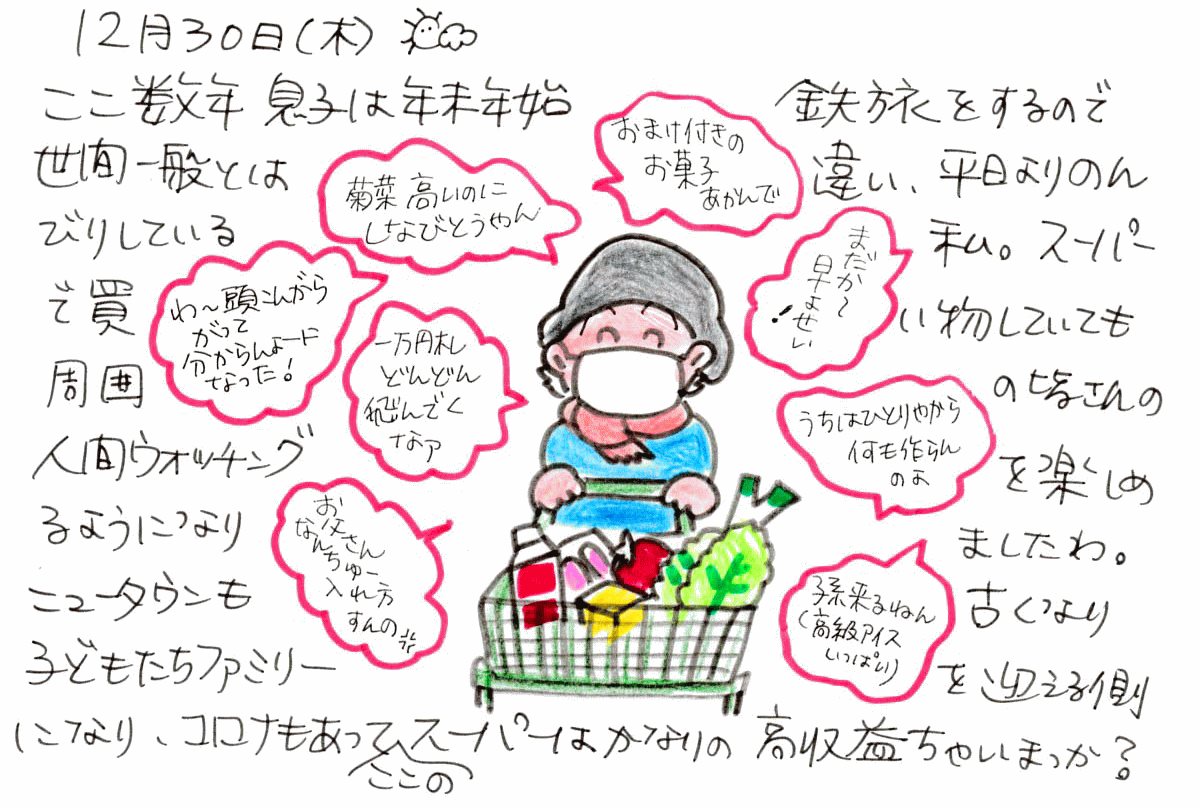 12月30日(木)
ここ数年 息子は年末年始 鉄旅をするので
世間一般とは 違い、平日よりのん
びりしている 私。スーパー
で買 い物していても
周囲 の皆さんの
人間ウォッチング を楽しめ
るようになり ましたわ。
ニュータウンも 古くなり
子どもたちファミリー を迎える側
になり、コロナもあってスーパーはかなりの高収益ちゃいまっか?
ここの
おまけ付きの
お菓子
あかんで
菊菜 高いのに
しなびとうやん
まだか〜
早よせい
!
わ〜頭こんがら
がって
分からんよーに
なった!
一万円札
どんどん
飛んでく
なァ
うちはひとりやから
何も作らん
のよ
お父さん
なんちゅー
入れ方
すんの
孫来るねん
(高級アイス
いっぱい)